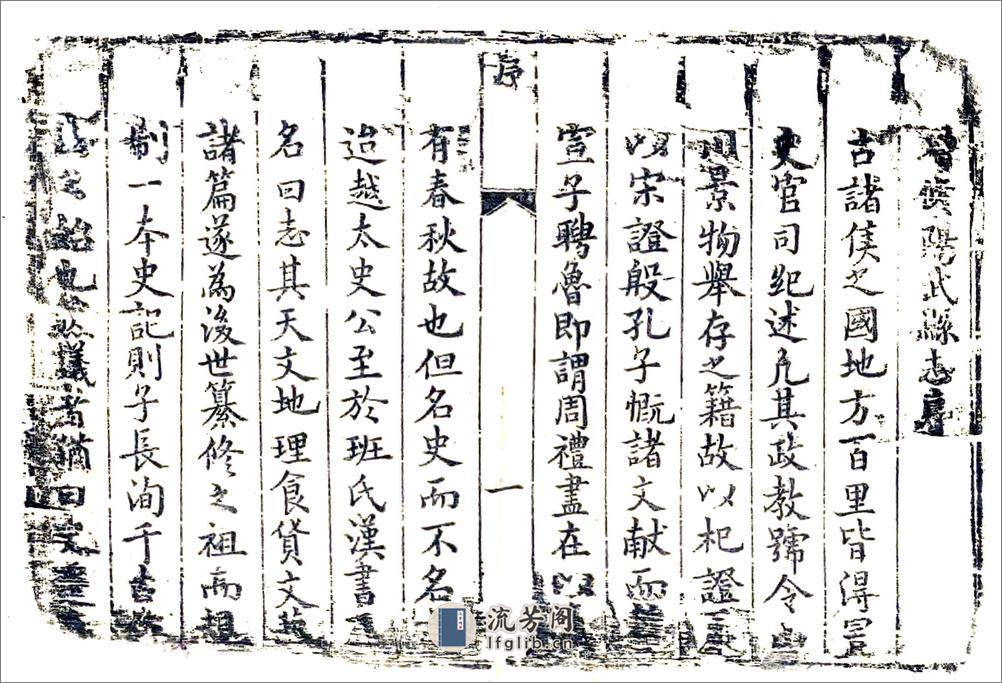 陽武縣志序
古諸侯之國地方百里皆得置
史官司紀述凡其政教號令山
川景物舉存之籍故以杞證夏
以宋證殷孔子慨諸文献而
宣子聘魯即謂周禮盡在以
序
一
有春秋故也但名史而不名
迨越太史公至於班氏漢書
名曰志其天文地理食貨文藝
諸篇遂為後世纂修之祖而
制一本史記則子長洵千古
也議者猶曰
流芳阁
lfglib.cn